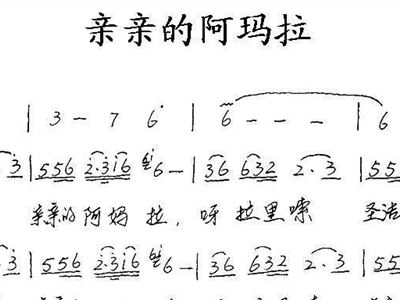 亲亲的阿玛拉
| 3 - 7 6 | 6 - - - | 6
3 | 556 2·316 6 - | 36 632 2·3 | 55
亲亲的阿妈 拉, 呀 拉里嗦 圣洁
3 | 556 2·316 6 - | 36 632 2·3 | 55